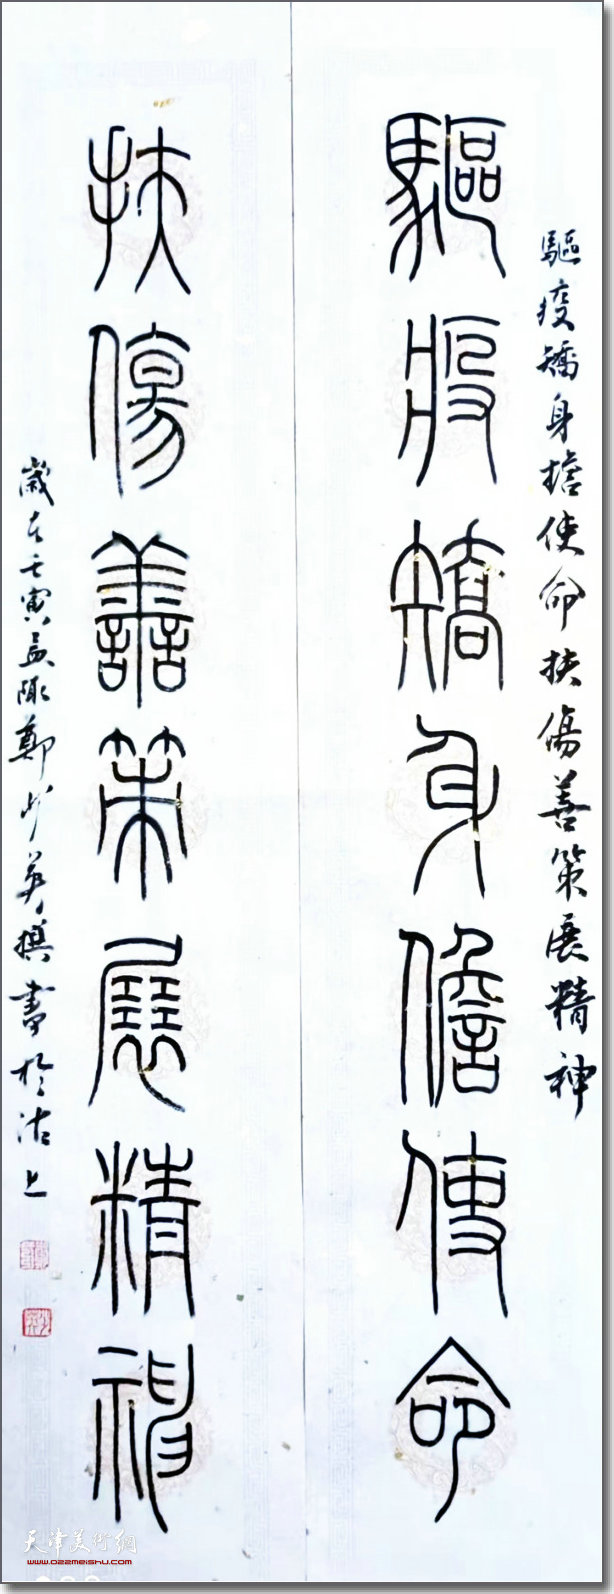 驅疫矯身擔使命扶傷善策展精神
驅疫矯身儋使命
扶傷善策展精神
歲在壬寅孟陬鄭少英撰書於沽上
天津美術網
www.022meishu.com